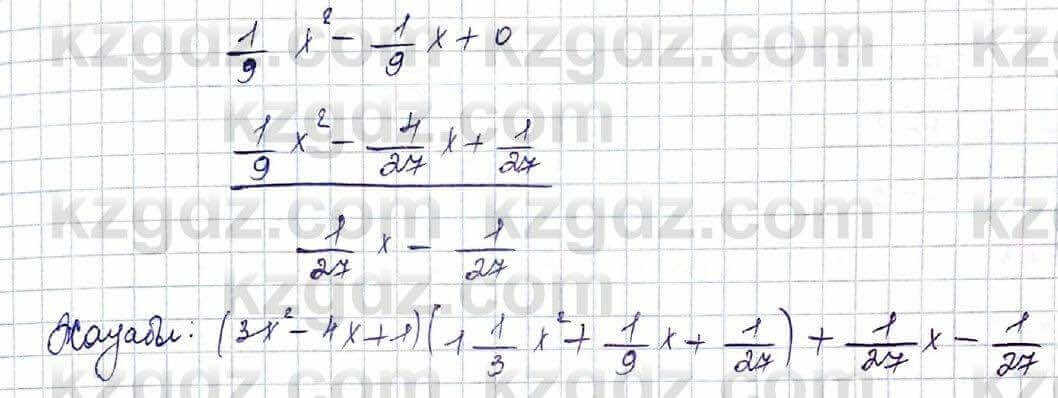 1/9 x² - 1/9 x + 0
1/9 x² - 4/27 x + 1/27
1/27 x - 1/27
Жауабы: (3x² - 4x + 1)(1 1/3 x² + 1/9 x + 1/27) + 1/27 x - 1/27
kzgdz.com kzgdz.com kz
kzgdz.com
kzgdz.com kzgdz.com kz
kzgdz.com
kzgdz.com kzgdz.com kz